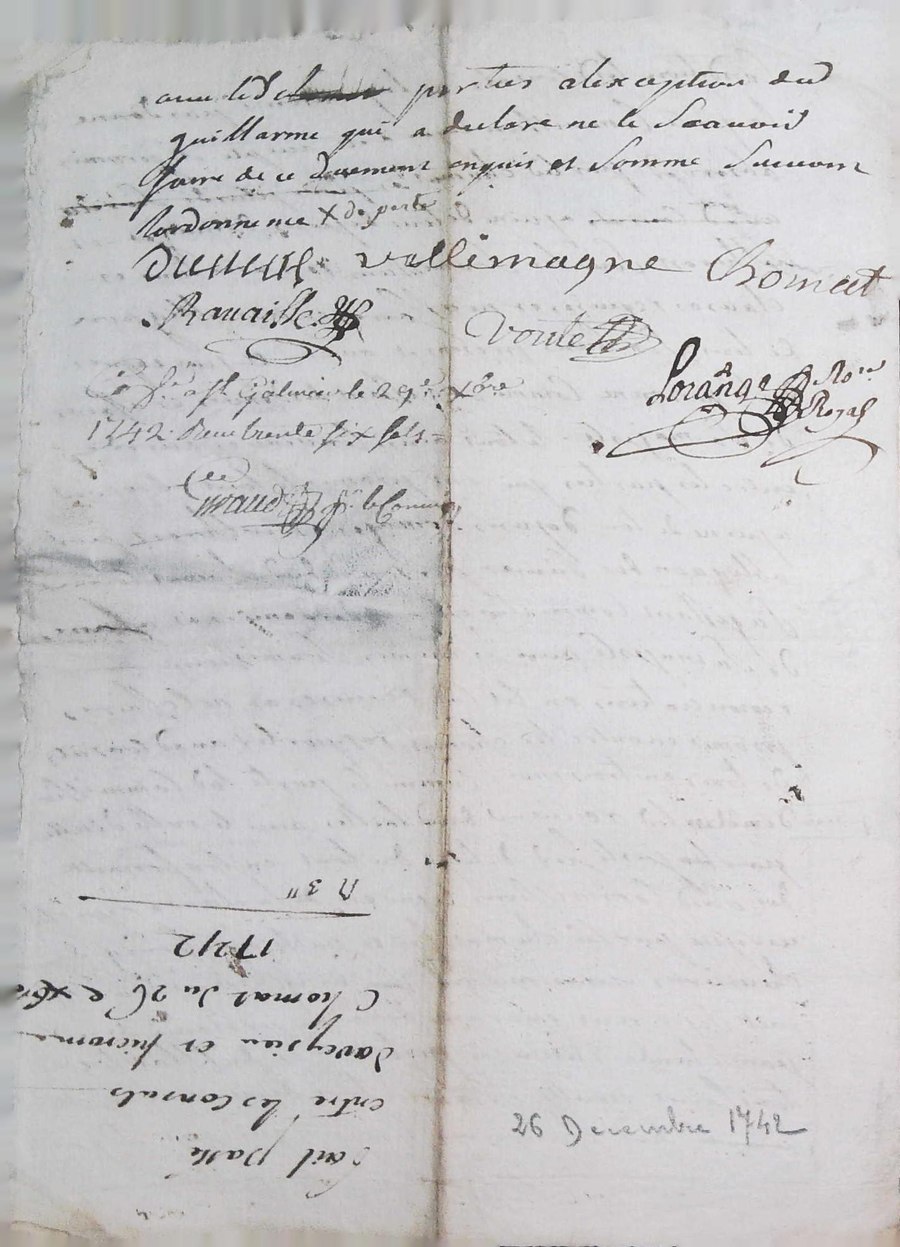 avec lesd parties a lexception dud
guillarme qui a declare ne le scavoir
faire de ce duement enquis et somme suivant
lordonnence x de parte
vallemagne Chomat
Ravaisse
voute
Lorange No.re
Royal
Con.le a st Galmier le 29e xbre
1742 Recu trente six sols
Giraud
n 3"
1742
Chomat du 26 e xbre
daveysieu et hierome
entre les Consuls
bail passé
26 Decembre 1742